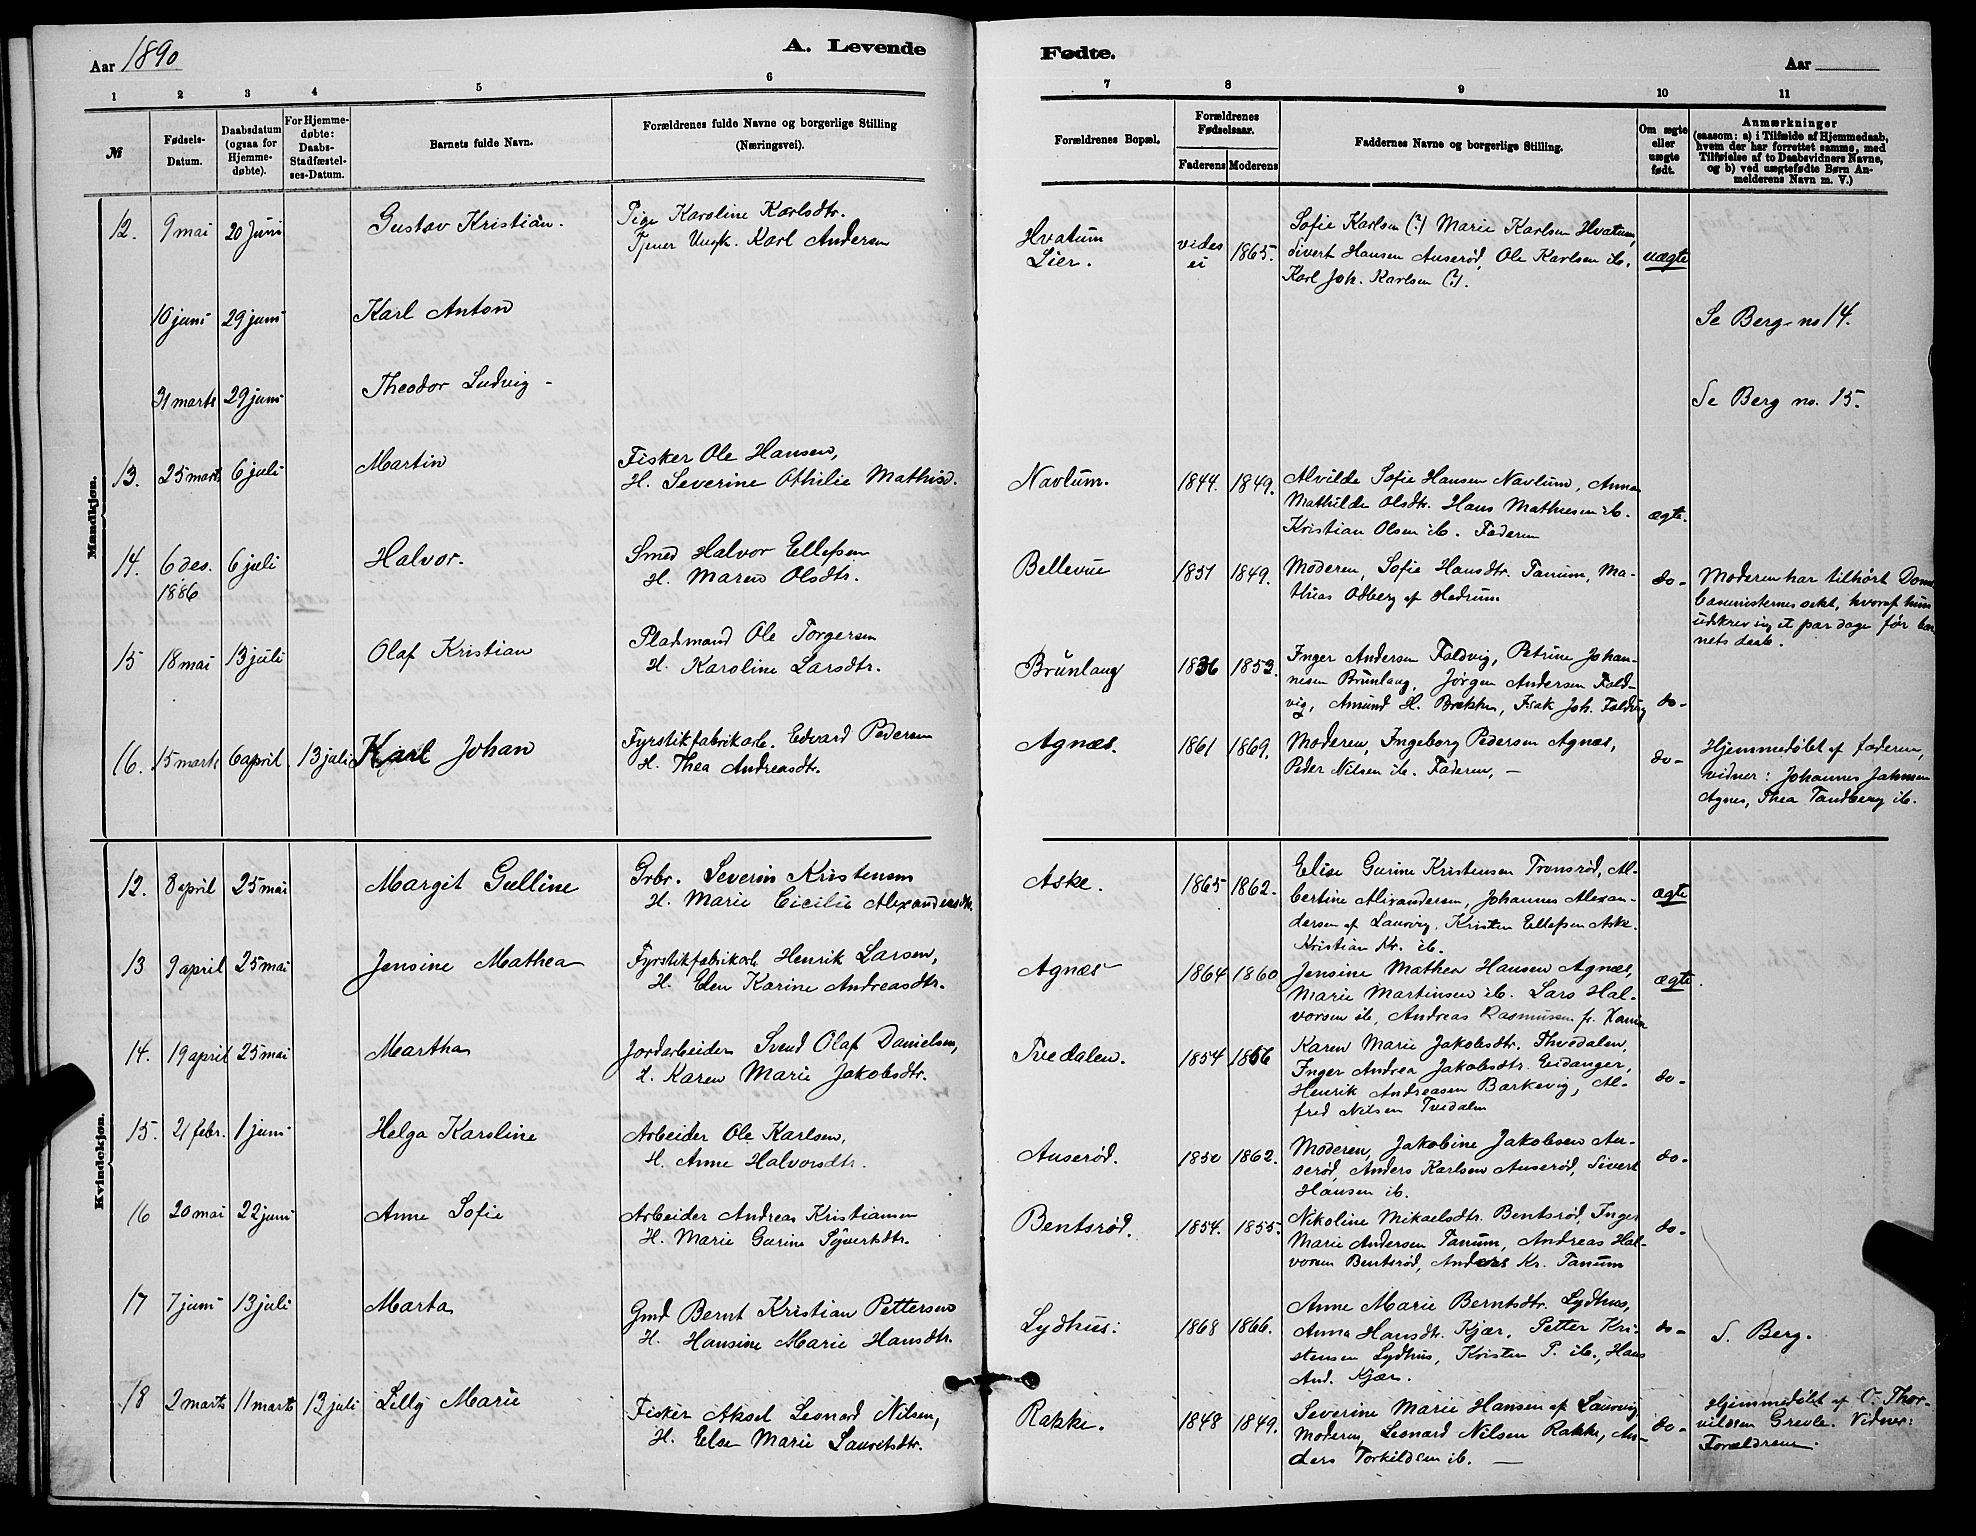 Aar 1890
A. Levende
Fødte.
Aar
1 2 3 4 5 6 7 8 9 10 11
№
Fødsels-
Datum.
Daabsdatum
(ogsaa for
Hjemme-
døbte).
For Hjemme-
døbte:
Daabs-
Stadfæstel-
ses-Datum.
Barnets fulde Navn.
Forældrenes fulde Navne og borgerlige Stilling
(Næringsvei).
Forældrenes Bopæl.
Forældrenes
Fødselsaar.
Faderens Moderens
Faddernes Navne og borgerlige Stilling.
Om ægte
eller
uægte
født.
Anmærkninger
(saasom: a) i Tilfælde af Hjemmedaab,
hvem der har forrettet samme, med
Tilføielse af to Daabsvidners Navne,
og b) ved uægtefødte Børn An-
melderens Navn m. V.)
Mandkjøn.
12. 9 mai 20 Juni Gustav Kristian.
Pige Karoline Karlsdtr.
Tjener Ungk. Karl Andersen
Hvatum
Lier.
vides
ei
1865.
Sofie Karlsen (?) Marie Karlsen Hvatum,
Sivert Hansen Auserød, Ole Karlsen ib.
Karl Joh. Karlsen (?).
uægte
10 juni 29 juni Karl Anton
Se Berg no 14.
31 marts 29 juni Theodor Ludvig -
Se Berg no. 15.
13. 25 marts 6 juli Martin
Fisker Ole Hansen,
H. Severine Othilie Mathisd.
Navlum. 1844. 1849.
Alvilde Sofie Hansen Navlum, Anna
Mathilde Olsdtr. Hans Mathiesen ib.
Kristian Olsen ib. Faderen
ægte.
14. 6 des. 6 juli Halvor.
1886
Smed Halvor Ellefsen
H. Maren Olsdtr.
Bellevue 1851 1849.
Moderen, Sofie Hansdtr. Tanum, Ma-
thias Odberg af Hedrum
do-
Moderen har tilhørt
udkrev et par dage før bar-
nets daab.
15 18 mai 13 juli Olaf Kristian
Pladsmand Ole Torgersen
H. Karoline Larsdtr.
Brunlaug 1836 1853.
Inger Andersen Faldvig, Petrine Johan-
nesen Brunlaug, Jørgen Andersen Fald-
vig, Amund H. Brekke, Isak Joh. Faldvig
do-
16. 15 marts 6 april 13 juli Karl Johan
Fyrstikfabrikarb. Edvard Pedersen
H. Thea Andreasdtr.
Agnæs. 1861 1869.
Moderen, Ingeborg Pedersen Agnæs,
Peder Nilsen ib. Faderen, -
do-
Hjemmedøbt af faderen,
vidner: Johannes
Agnes, Thea Tandberg ib.
Kvindekjøn.
12. 8 april 25 mai Margit Gulline
Grbr. Severin Kristensen
H. Marie Cicilie Alexandersdtr.
Aske. 1865 1862.
Elise Gurine Kristensen Tronsrød, Al-
bertine Alexandersen, Johannes Alexan-
dersen af Laurvig, Kristen Ellefsen Aske.
Kristian Kr. ib.
ægte
13 9 april 25 mai Jensine Mathea
Fyrstikfabrikarb Henrik Larsen,
H. Elen Karine Andreasdtr.
Agnæs 1864 1860
Jensine Mathea Hansen Agnæs,
Marie Martinsen ib. Lars Hal-
vorsen ib, Andreas Rasmussen fr.
ægte.
14. 19 april 25 mai Martha
Jordarbeider Svend Olaf Danielsen,
H. Karen Marie Jakobsdtr.
Tvedalen. 1854 1856
Karen Marie Jakobsdtr. Thvedalen,
Inger Andrea Jakobsdtr. Eidanger,
Henrik Andreasen Barkevig, Al-
fred Nilsen Tvedalen
do-
15. 21 febr. 1 juni Helga Karoline
Arbeider Ole Karlsen,
H. Anne Halvorsdtr.
Auserød. 1850 1862.
Moderen, Jakobine Jakobsen Au-
serød, Anders Karlsen Auserød, Sivert
Hansen ib.
do-
16 20 mai 22 juni Anne Sofie
Arbeider Andreas Kristiansen
H. Marie Gurine Syvertsdtr.
Bentsrød. 1854. 1855.
Nikoline Mikaelsdtr. Bentsrød, Inger
Marie Andersen Tanum, Andreas Hal-
vorsen Bentsrød, Anders Kr. Tanum
do-
17 7 juni 13 juli Marta
Gmd Bernt Kristian Pettersen
H. Hansine Marie Hansdtr.
Lydhus: 1868 1866.
Anne Marie Berntsdtr. Lydhus,
Anna Hansdtr. Kjær, Petter Kri-
stensen Lydhus, Kristen P. ib., Hans
And. Kjær.
do-
S. Berg.
18 2 marts 11 marts 13 juli Lilly Marie
Fisker Aksel Leonard Nilsen,
H. Else Marie Lauritsdtr.
Rakke. 1848 1849.
Severine Marie Hansen af Laurvig
Moderen, Leonard Nilsen Rakke, An-
ders Torkildsen ib. -
do-
Hjemmedøbt af O. Thor-
vildsen Grevle. Vidner:
Forældrene.